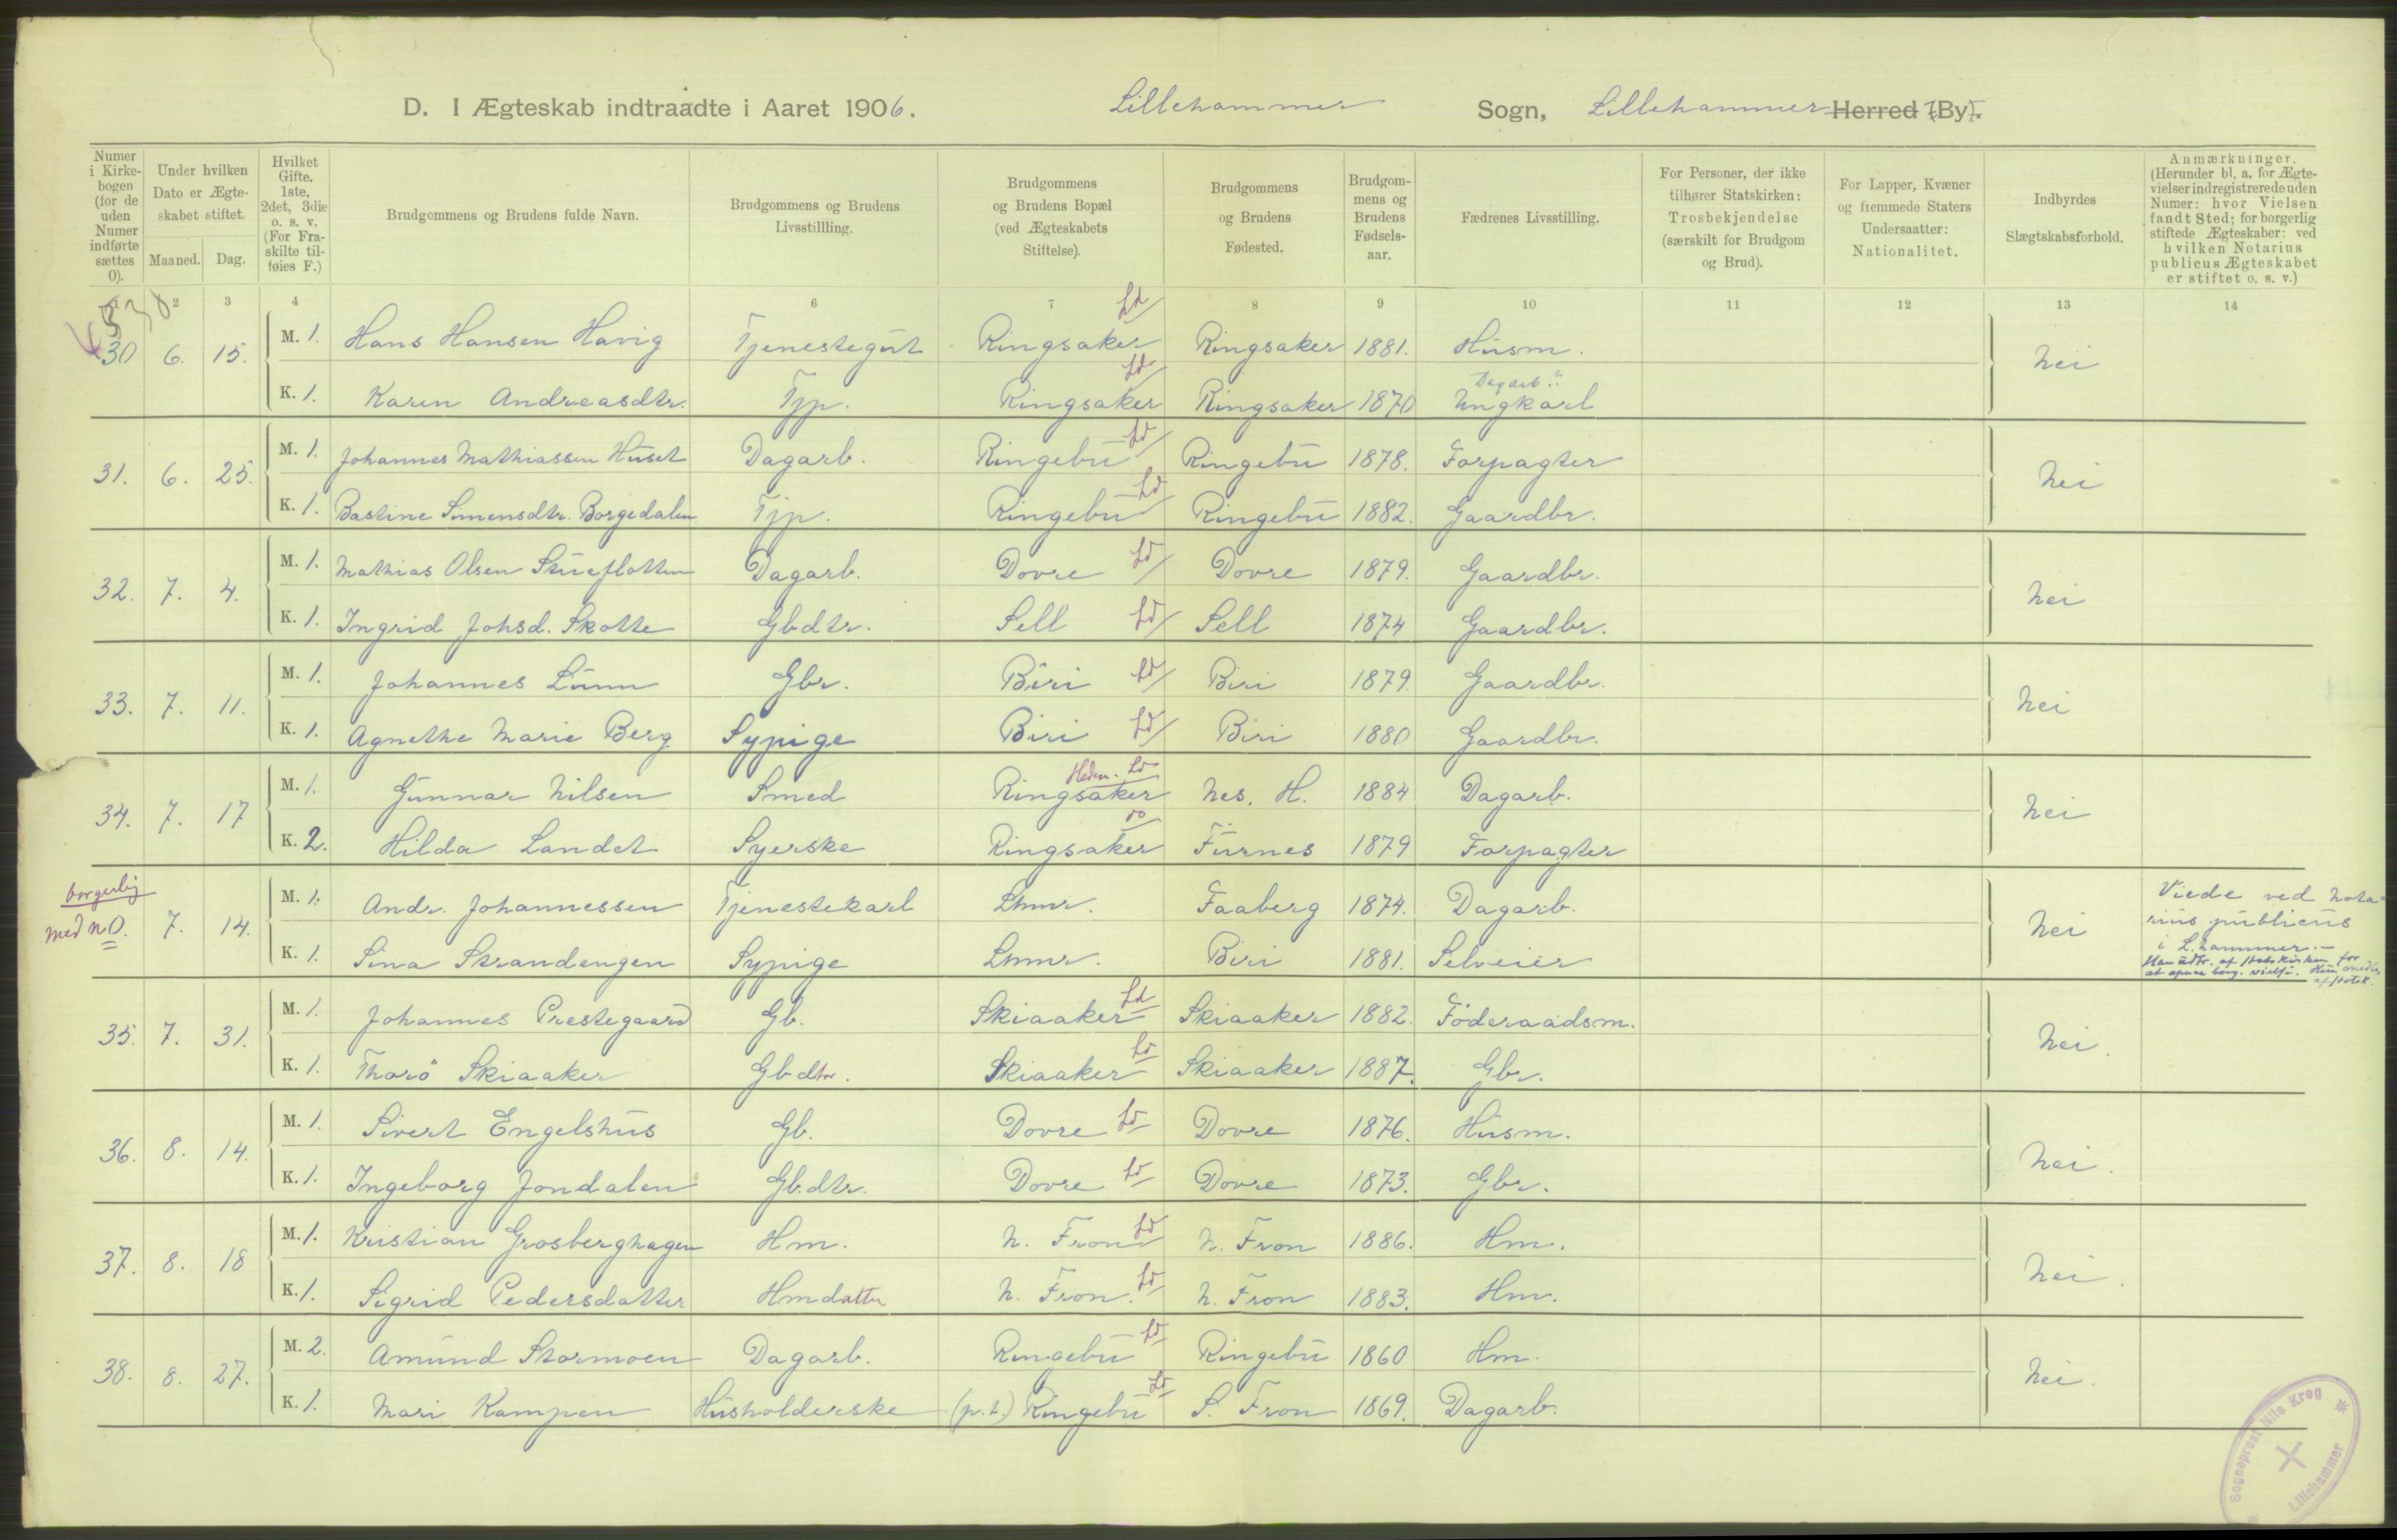 D. I Ægteskab indtraadte i Aaret 1906. Lillehammer Sogn, Lillehammer Herred (By).
Numer i Kirkebogen (for de uden Numer indførte sættes 0).
Under hvilken Dato er Ægteskabet stiftet.
Maaned. Dag.
Hvilket Gifte. 1ste, 2det, 3die o. s. v. (For Fraskilte tilføies F.)
Brudgommens og Brudens fulde Navn.
Brudgommens og Brudens Livsstillling.
Brudgommens og Brudens Bopæl (ved Ægteskabets Stiftelse).
Brudgommens og Brudens Fødested.
Brudgommens og Brudens Fødselsaar.
Fædrenes Livsstilling.
For Personer, der ikke tilhører Statskirken: Trosbekjendelse (særskilt for Brudgom og Brud).
For Lapper, Kvæner og fremmede Staters Undersaatter: Nationalitet.
Indbyrdes Slægtskabsforhold.
Anmærkninger. (Herunder bl. a. for Ægtevielser indregistrerede uden Numer: hvor Vielsen fandt Sted; for borgerlig stiftede Ægteskaber: ved hvilken Notarius publicus Ægteskabet er stiftet o. s. v.)
1 2 3 4 6 7 8 9 10 11 12 13 14
30 6. 15. M. 1. Hans Hansen Havig Tjenestegut Ringsaker Ld Ringsaker 1881. Husm. nei
K. 1. Karen Andreasdtr. Tjp. Ringsaker Ld Ringsaker 1870 Dagarb. Ungkarl
31. 6. 25. M. 1. Johannes Mathiassen Huset Dagarb. Ringebu Ld Ringebu 1878. Forpagter nei
K. 1. Bastine Simensdtr. Borgedalen Tjp. Ringebu Ld Ringebu 1882. Gaardbr.
32. 7. 4. M. 1. Mathias Olsen Stueflotten Dagarb. Dovre Ld Dovre 1879. Gaardbr. nei
K. 1. Ingrid Johsd. Skotte Gbdtr. Sell Ld Sell 1874 Gaardbr.
33. 7. 11. M. 1. Johannes Lunn Gbr. Biri Ld Biri 1879. Gaardbr. nei
K. 1. Agnethe Marie Berg Sypige Biri Ld Biri 1880 Gaardbr.
34. 7. 17 M. 1. Gunnar Nilsen Smed Ringsaker Hedm. Ld Nes. H. 1884 Dagarb. nei
K. 2. Hilda Landet Syerske Ringsaker do Furnes 1879 Forpagter
borgerlig
med n 0. 7. 14. M. 1. Andr. Johannessen Tjenestekarl Lhmr. Faaberg 1874. Dagarb. nei Viede ved Nota=
rius publicus
K. 1. Sina Strandengen Sypige Lhmr. Biri 1881. Selveier i L.hammer.-
Han udtr. af Statskirken for
35. 7. 31. M. 1. Johannes Prestegaard Gb. Skiaaker Ld Skiaaker 1882. Föderaadsm. nei.
K. 1. Thorö Skiaaker Gbdtr. Skiaaker Ld Skiaaker 1887. Gbr.
36. 8. 14. M. 1. Sivert Engelshus Gb. Dovre Ld Dovre 1876. Husm. nei.
K. 1. Ingeborg Jondalen Gb.dtr. Dovre Ld Dovre 1873. Gbr.
37. 8. 18 M. 1. Kristian Grosberghagen Hm. N. Fron Ld N. Fron 1886. Hm. nei.
K. 1. Sigrid Pedersdatter Hmdatter N. Fron. Ld N. Fron 1883. Hm.
38. 8. 27. M. 2. Amund Stormoen Dagarb. Ringebu Ld Ringebu 1860 Hm. nei.
K. 1. Mari Kampen Husholderske (p.t.) Ringebu Ld S. Fron 1869. Dagarb.
Sogneprest Nils Krog
Lillehammer